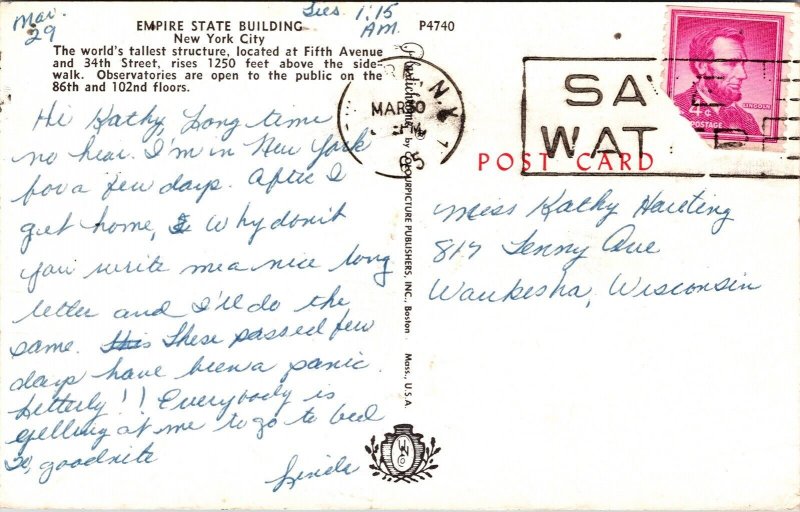 Mar. 29
Tues 1:15 AM.
EMPIRE STATE BUILDING
New York City
P4740
The world's tallest structure, located at Fifth Avenue
and 34th Street, rises 1250 feet above the side-
walk. Observatories are open to the public on the
86th and 102nd floors.
Hi Kathy, Long time
no hear. I'm in New York
for a few days. After I
get home, why don't
you write me a nice long
letter and I'll do the
same. This These passed few
days have been a panic.
! ! Everybody is
yelling at me to go to bed
so, goodnite
Linda
Plastichrome® by COLOURPICTURE PUBLISHERS, INC., Boston Mass., U.S.A.
N.Y.
MAR 30
PM
SA
WAT
4¢
LINCOLN
POSTAGE
POST CARD
Miss Kathy Hauting
817 Tenny Ave
Waukesha, Wisconsin